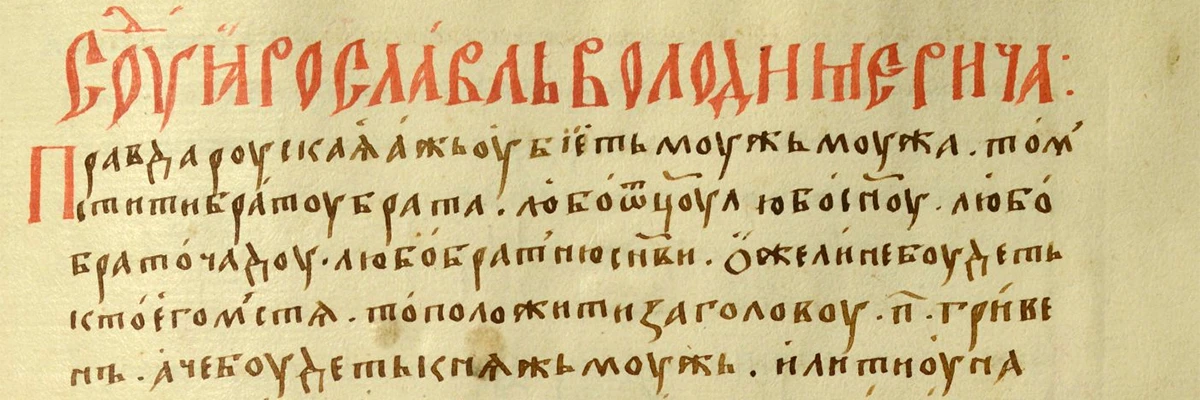 Соуⷣ ꙗрославль володимерича:
Правда роусьскаꙗ а́жь оубїе́ть моужь моужа. то м
стити бра́тоу брата. лю́бо ѿц҃оу любо сн҃оу. лю́бо
брато́чадоу. любо́ братню сн҃ви. ѡ́же ли не боудеть
кто́ е́го мьстѧ. то положити за головоу. п҃. гри́ве
нъ. а́че боудеть кнѧжь моужь. и́ли тиоу́на